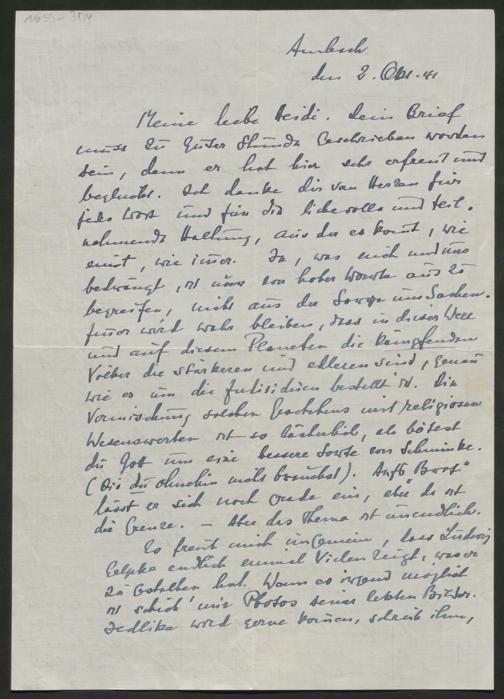 1655-3814
Ambach
den 2. Okt. 41
Meine liebe Heidi. Dein Brief
muss zu guter Stunde geschrieben worden
sein, denn er hat hier sehr erfreut und
beglückt. Ich danke dir von Herzen fürs
jedes Wort und für die liebevolle und teil-
nehmende Haltung, aus der es kommt, wie
einst, wie immer. Ja, was euch und uns
bedrängt, ist nur von hoher Warte aus zu
begreifen, nicht aus der
wird wahr bleiben, dass in dieser Welt
und auf diesem Planeten die kämpfenden
Völker die stärkeren und edleren sind, genau
wie es um die Individuen bestellt ist. Die
Vermischung solchen Geschehens mit religiösen
Wesenswerten ist so lächerlich, als bötest
du Gott um eine bessere Sorte von Schminke.
(Die du ohnehin nicht brauchst).
lässt er sich noch grade ein, aber da ist
die Grenze. — Aber das Thema ist unendlich.
Es freut mich ungemein, dass Ludwig
endlich einmal Vielen zeigt, was er
zu gestalten hat. Wenn es irgend möglich
ist schick' mir Photos seiner letzten Bilder.
Jedlika wird gerne kommen, schreib ihm,